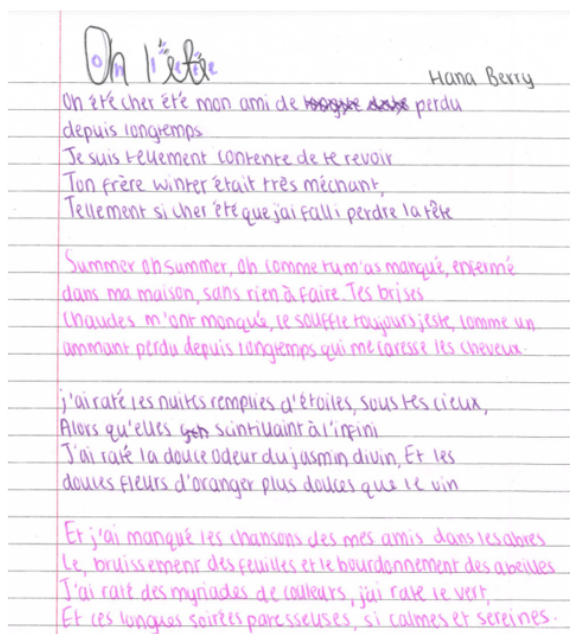 Oh l'été
Hana Berry
Oh été cher été mon ami de perdu
depuis longtemps
Je suis tellement contente de te revoir
Ton frère winter était très méchant,
Tellement si cher été que j'ai falli perdre la tête
Summer oh summer, oh comme tu m'as manqué, enfermé
dans ma maison, sans rien à faire. Tes brises
chaudes m'ont manqué, le souffle toujours jeste, comme un
ammant perdu depuis longtemps qui me caresse les cheveux.
j'ai raté les nuits remplies d'étoiles, sous tes cieux,
Alors qu'elles scintillaint à l'infini
J'ai raté la douce odeur du jasmin divin, Et les
douces fleurs d'oranger plus douces que le vin
Et j'ai manqué les chansons des mes amis dans les abres
Le, bruissement des feuilles et le bourdonnement des abeilles
J'ai raté des myriades de couleurs, j'ai raté le vert,
Et ces longues soirées paresseuses, si calmes et sereines.